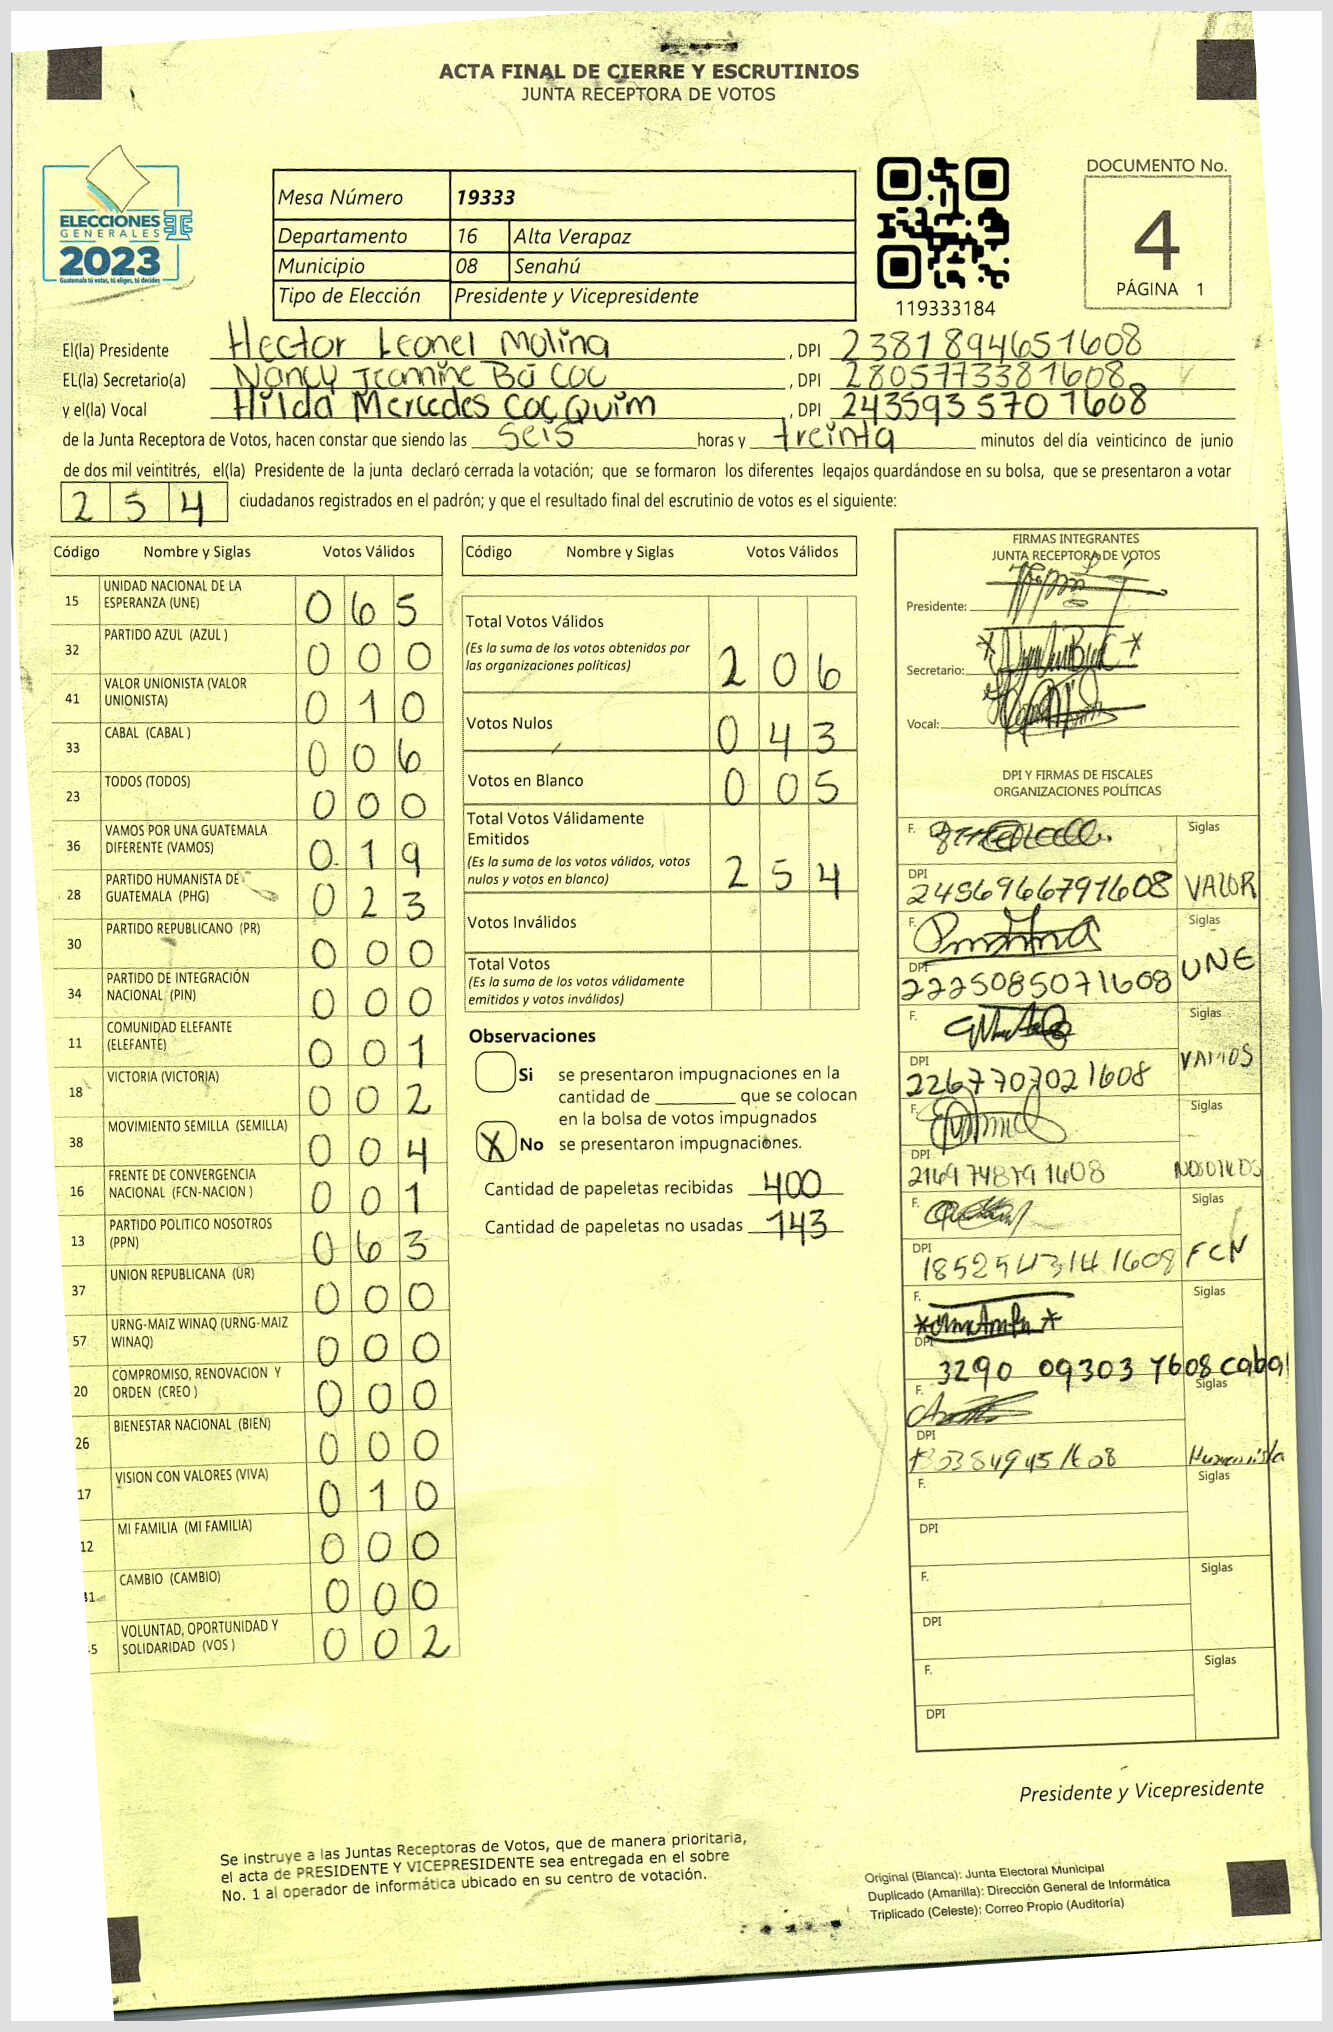 ACTA FINAL DE CIERRE Y ESCRUTINIOS
JUNTA RECEPTORA DE VOTOS
ELECCIONES
GENERALES
2023
Guatemala tú votas, tú eliges, tú decides
Mesa Número 19333
Departamento 16 Alta Verapaz
Municipio 08 Senahú
Tipo de Elección Presidente y Vicepresidente
119333184
DOCUMENTO No.
4
PÁGINA 1
El(la) Presidente Hector Leonel Molina, DPI 2381894651608
EL(la) Secretario(a) Nancy Jeannine Bá Coc, DPI 2805773381608
y el(la) Vocal Hilda Mercedes Coc Quim, DPI 2435935701608
de la Junta Receptora de Votos, hacen constar que siendo las seis horas y treinta minutos del día veinticinco de junio
de dos mil veintitrés, el(la) Presidente de la junta declaró cerrada la votación; que se formaron los diferentes legajos quardándose en su bolsa, que se presentaron a votar
254 ciudadanos registrados en el padrón; y que el resultado final del escrutinio de votos es el siguiente:
Código Nombre y Siglas Votos Válidos
15 UNIDAD NACIONAL DE LA ESPERANZA (UNE) 065
32 PARTIDO AZUL (AZUL ) 000
41 VALOR UNIONISTA (VALOR UNIONISTA) 010
33 CABAL (CABAL ) 006
23 TODOS (TODOS) 000
36 VAMOS POR UNA GUATEMALA DIFERENTE (VAMOS) 019
28 PARTIDO HUMANISTA DE GUATEMALA (PHG) 023
30 PARTIDO REPUBLICANO (PR) 000
34 PARTIDO DE INTEGRACIÓN NACIONAL (PIN) 000
11 COMUNIDAD ELEFANTE (ELEFANTE) 001
18 VICTORIA (VICTORIA) 002
38 MOVIMIENTO SEMILLA (SEMILLA) 004
16 FRENTE DE CONVERGENCIA NACIONAL (FCN-NACION ) 001
13 PARTIDO POLITICO NOSOTROS (PPN) 063
37 UNION REPUBLICANA (UR) 000
57 URNG-MAIZ WINAQ (URNG-MAIZ WINAQ) 000
20 COMPROMISO, RENOVACION Y ORDEN (CREO ) 000
26 BIENESTAR NACIONAL (BIEN) 000
17 VISION CON VALORES (VIVA) 010
12 MI FAMILIA (MI FAMILIA) 000
31 CAMBIO (CAMBIO) 000
5 VOLUNTAD, OPORTUNIDAD Y SOLIDARIDAD (VOS ) 002
Código Nombre y Siglas Votos Válidos
Total Votos Válidos
(Es la suma de los votos obtenidos por
las organizaciones políticas) 206
Votos Nulos 043
Votos en Blanco 005
Total Votos Válidamente
Emitidos
(Es la suma de los votos válidos, votos
nulos y votos en blanco) 254
Votos Inválidos
Total Votos
(Es la suma de los votos válidamente
emitidos y votos inválidos)
Observaciones
Si se presentaron impugnaciones en la
cantidad de ________ que se colocan
en la bolsa de votos impugnados
X No se presentaron impugnaciones.
Cantidad de papeletas recibidas 400
Cantidad de papeletas no usadas 143
FIRMAS INTEGRANTES
JUNTA RECEPTORA DE VOTOS
Presidente:
Secretario:
Vocal:
DPI Y FIRMAS DE FISCALES
ORGANIZACIONES POLÍTICAS
F. Siglas
DPI 2456966791608 VALOR
F. Siglas
DPI 2225085071608 UNE
F. Siglas
DPI 2267707021608 VAMOS
F. Siglas
DPI NOSOTROS
F. Siglas
DPI 1852543141608 FCN
F. Siglas
DPI 3290 09303 1608 cabal
F. Siglas
DPI Humanista
F. Siglas
DPI
F. Siglas
DPI
F. Siglas
DPI
Presidente y Vicepresidente
Se instruye a las Juntas Receptoras de Votos, que de manera prioritaria,
el acta de PRESIDENTE Y VICEPRESIDENTE sea entregada en el sobre
No. 1 al operador de informática ubicado en su centro de votación.
Original (Blanca): Junta Electoral Municipal
Duplicado (Amarilla): Dirección General de Informática
Triplicado (Celeste): Correo Propio (Auditoría)